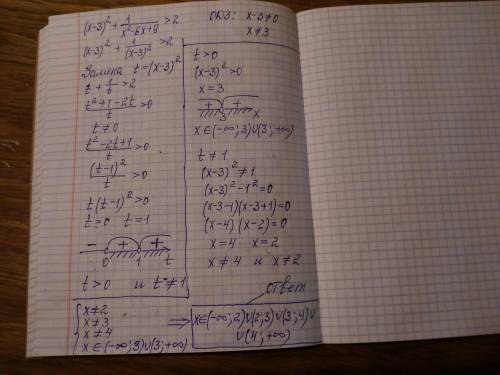 (x-3)² + 1/(x²-6x+9) > 2
(x-3)² + 1/(x-3)² > 2
Замена t=(x-3)²
t + 1/t > 2
(t²+1-2t)/t > 0
t ≠ 0
(t²-2t+1)/t > 0
(t-1)²/t > 0
t(t-1)² > 0
t=0 t=1
- + +
0 1 t
t > 0 и t ≠ 1
{ x≠2
x≠3
x≠4
x∈(-∞;3)∪(3;+∞)
ОДЗ: x-3≠0
x≠3
t>0
(x-3)²>0
x=3
+ +
3 x
x∈(-∞;3)∪(3;+∞)
t≠1
(x-3)²≠1
(x-3)²-1²=0
(x-3-1)(x-3+1)=0
(x-4)(x-2)=0
x=4 x=2
x≠4 и x≠2
ответ
⇒ x∈(-∞;2)∪(2;3)∪(3;4)∪
∪(4;+∞)